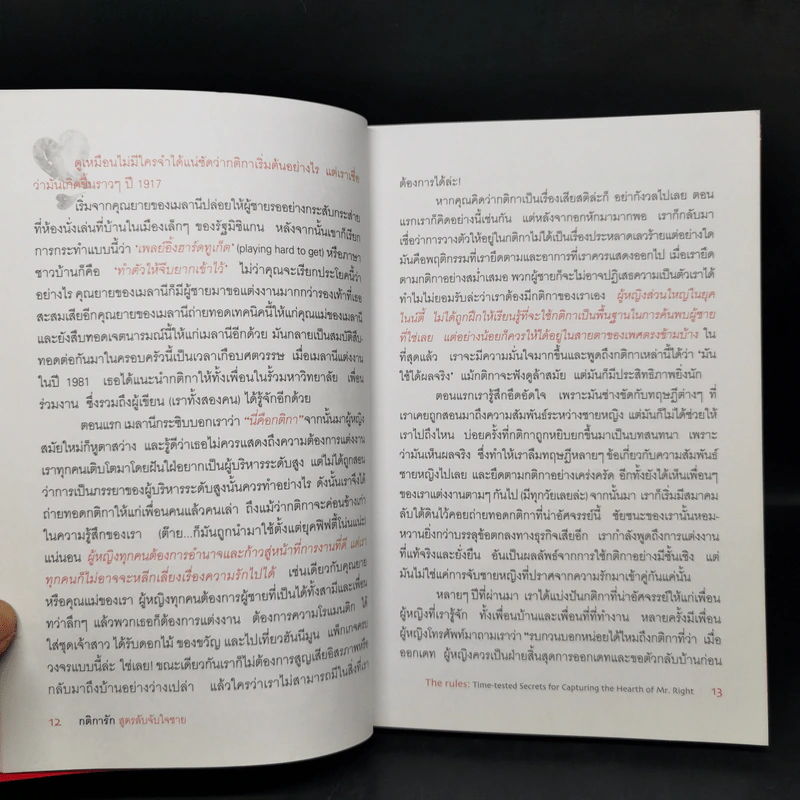 ดูเหมือนไม่มีใครจำได้แน่ชัดว่ากติกาเริ่มต้นอย่างไร แต่เราเชื่อ
ว่ามันเกิดขึ้นราวๆ ปี 1917
เริ่มจากคุณยายของเมลานีปล่อยให้ผู้ชายรออย่างกระสับกระส่าย
ที่ห้องนั่งเล่นที่บ้านในเมืองเล็กๆ ของรัฐมิชิแกน หลังจากนั้นเขาก็เรียก
การกระทำแบบนี้ว่า 'เพลย์อิ้งฮาร์ดทูเก็ต' (playing hard to get) หรือภาษา
ชาวบ้านก็คือ 'ทำตัวให้จีบยากเข้าไว้' ไม่ว่าคุณจะเรียกประโยคนี้ว่า
อย่างไร คุณยายของเมลานีก็มีผู้ชายมาขอแต่งงานมากกว่ารองเท้าที่เธอ
สะสมเสียอีกคุณยายของเมลานีถ่ายทอดเทคนิคนี้ให้แก่คุณแม่ของเมลานี
และยังสืบทอดเจตนารมณ์นี้ให้แก่เมลานีอีกด้วย มันกลายเป็นสมบัติสืบ-
ทอดต่อกันมาในครอบครัวนี้เป็นเวลาเกือบศตวรรษ เมื่อเมลานีแต่งงาน
ในปี 1981 เธอได้แนะนำกติกาให้ทั้งเพื่อนในรั้วมหาวิทยาลัย เพื่อน
ร่วมงาน ซึ่งรวมถึงผู้เขียน (เราทั้งสองคน) ได้รู้จักอีกด้วย
ตอนแรก เมลานีกระซิบบอกเราว่า "นี่คือกติกา" จากนั้นมาผู้หญิง
สมัยใหม่ก็หูตาสว่าง และรู้ดีว่าเธอไม่ควรแสดงถึงความต้องการแต่งงาน
เราทุกคนเติบโตมาโดยฝันใฝ่อยากเป็นผู้บริหารระดับสูง แต่ไม่ได้ถูกสอน
ว่าการเป็นภรรยาของผู้บริหารระดับสูงนั้นควรทำอย่างไร ดังนั้นเราจึงได้
ถ่ายทอดกติกาให้แก่เพื่อนคนแล้วคนเล่า ถึงแม้ว่ากติกาจะค่อนข้างเก่า
ในความรู้สึกของเรา (ต๊าย...ก็มันถูกนำมาใช้ตั้งแต่ยุคฟิฟตี้โน่นแน่ะ)
แน่นอน ผู้หญิงทุกคนต้องการอำนาจและก้าวสู่หน้าที่การงานที่ดี แต่เรา
ทุกคนก็ไม่อาจจะหลีกเลี่ยงเรื่องความรักไปได้ เช่นเดียวกับคุณยาย
หรือคุณแม่ของเรา ผู้หญิงทุกคนต้องการผู้ชายที่เป็นได้ทั้งสามีและเพื่อน
ทว่าลึกๆ แล้วพวกเธอก็ต้องการแต่งงาน ต้องการความโรแมนติก ได้
ใส่ชุดเจ้าสาว ได้รับดอกไม้ ของขวัญ และไปเที่ยวฮันนีมูน แพ็กเกจครบ
วงจรแบบนี้ล่ะ ใช่เลย! ขณะเดียวกันเราก็ไม่ต้องการสูญเสียอิสรภาพหรือ
กลับมาถึงบ้านอย่างว่างเปล่า แล้วใครว่าเราไม่สามารถมีในสิ่งที่เรา
12 กติการัก สูตรลับจับใจชาย
ต้องการได้ล่ะ!
หากคุณคิดว่ากติกาเป็นเรื่องเสียสติล่ะก็ อย่ากังวลไปเลย ตอน
แรกเราก็คิดอย่างนี้เช่นกัน แต่หลังจากอกหักมามากพอ เราก็กลับมา
เชื่อว่าการวางตัวให้อยู่ในกติกาไม่ได้เป็นเรื่องประหลาดเลวร้ายแต่อย่างใด
มันคือพฤติกรรมที่เรายึดตามและอาการที่เราควรแสดงออกไป เมื่อเรายึด
ตามกติกาอย่างสม่ำเสมอ พวกผู้ชายก็จะไม่อาจปฏิเสธความเป็นตัวเราได้
ทำไมไม่ยอมรับล่ะว่าเราต้องมีกติกาของเราเอง ผู้หญิงส่วนใหญ่ในยุค
ไนน์ตี้ ไม่ได้ถูกฝึกให้เรียนรู้ที่จะใช้กติกาเป็นพื้นฐานในการค้นพบผู้ชาย
ที่ใช่เลย แต่อย่างน้อยก็ควรให้ได้อยู่ในสายตาของเพศตรงข้ามบ้าง ใน
ที่สุดแล้ว เราจะมีความมั่นใจมากขึ้นและพูดถึงกติกาเหล่านี้ได้ว่า 'มัน
ใช้ได้ผลจริง' แม้กติกาจะฟังดูล้าสมัย แต่มันก็มีประสิทธิภาพยิ่งนัก
ตอนแรกเรารู้สึกอึดอัดใจ เพราะมันช่างขัดกับทฤษฎีต่างๆ ที่
เราเคยถูกสอนมาถึงความสัมพันธ์ระหว่างชายหญิง แต่มันก็ไม่ได้ช่วยให้
เราไปถึงไหน บ่อยครั้งที่กติกาถูกหยิบยกขึ้นมาเป็นบทสนทนา เพราะ
ว่ามันเห็นผลจริง ซึ่งทำให้เราลืมทฤษฎีหลายๆ ข้อเกี่ยวกับความสัมพันธ์
ชายหญิงไปเลย และยึดตามกติกาอย่างเคร่งครัด อีกทั้งยังได้เห็นเพื่อนๆ
ของเราแต่งงานตามๆ กันไป (มีทุกวัยเลยล่ะ) จากนั้นมา เราก็เริ่มมีสมาคม
ลับใต้ดินไว้คอยถ่ายทอดกติกาที่น่าอัศจรรย์นี้ ชัยชนะของเรานั้นหอม-
หวานยิ่งกว่าบรรลุข้อตกลงทางธุรกิจเสียอีก เรากำลังพูดถึงการแต่งงาน
ที่แท้จริงและยั่งยืน อันเป็นผลลัพธ์จากการใช้กติกาอย่างมีชั้นเชิง แต่
มันไม่ใช่แค่การจับชายหญิงที่ปราศจากความรักมาเข้าคู่กันแค่นั้น
หลายๆ ปีที่ผ่านมา เราได้แบ่งปันกติกาที่น่าอัศจรรย์ให้แก่เพื่อน
ผู้หญิงที่เรารู้จัก ทั้งเพื่อนบ้านและเพื่อนที่ที่ทำงาน หลายครั้งมีเพื่อน
ผู้หญิงโทรศัพท์มาถามเราว่า "รบกวนบอกหน่อยได้ไหมถึงกติกาที่ว่า เมื่อ
ออกเดท ผู้หญิงควรเป็นฝ่ายสิ้นสุดการออกเดทและขอตัวกลับบ้านก่อน
The rules: Time-tested Secrets for Capturing the Hearth of Mr. Right 13